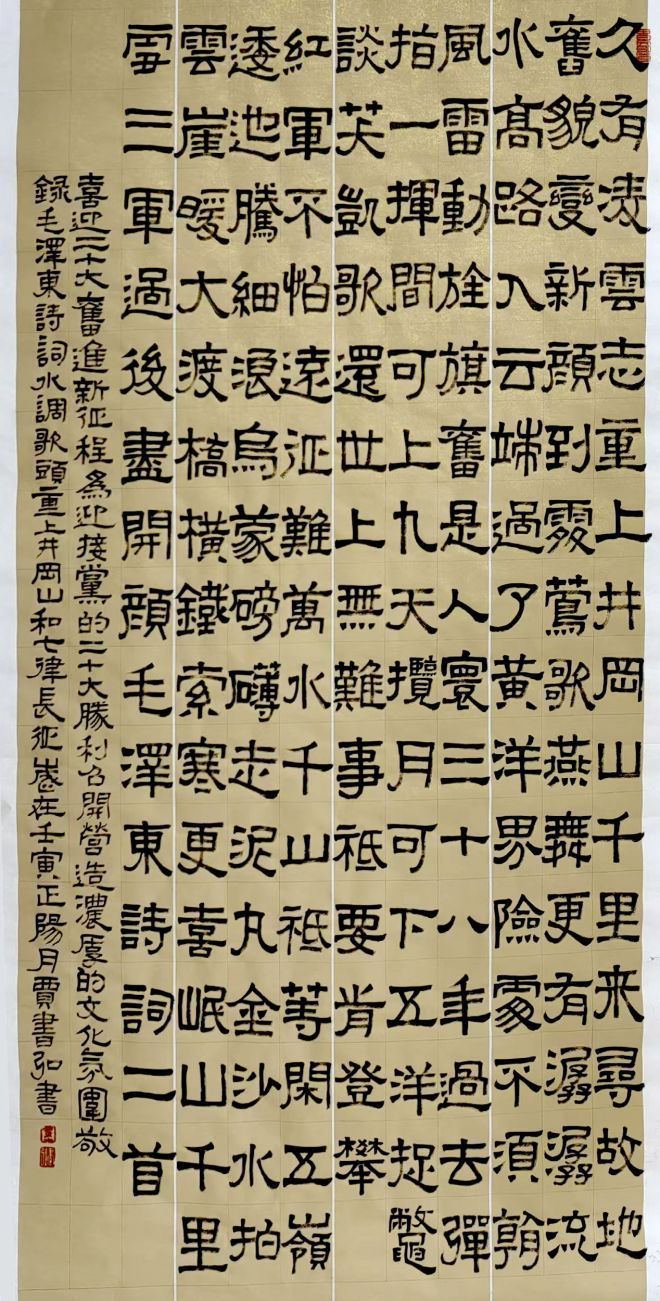 久有凌雲志重上井岡山千里来尋故地
舊貌變新顏到處鶯歌燕舞更有潺潺流
水高路入云端過了黄洋界險處不須看
風雷動旌旗奮是人寰三十八年過去彈
指一揮間可上九天攬月可下五洋捉鼈
談笑凱歌還世上無難事祗要肯登攀
紅軍不怕遠征難萬水千山祗等閑五嶺
逶迤騰細浪烏蒙磅礴走泥丸金沙水拍
雲崖暖大渡橋橫鐵索寒更喜岷山千里
雪三軍過後盡開顏毛澤東詩詞二首
喜迎二十大奮進新征程為迎接黨的二十大勝利召開營造濃厚的文化氛圍敬
錄毛澤東詩詞水調歌頭重上井岡山和七律長征歲在壬寅正陽月賈書弘書